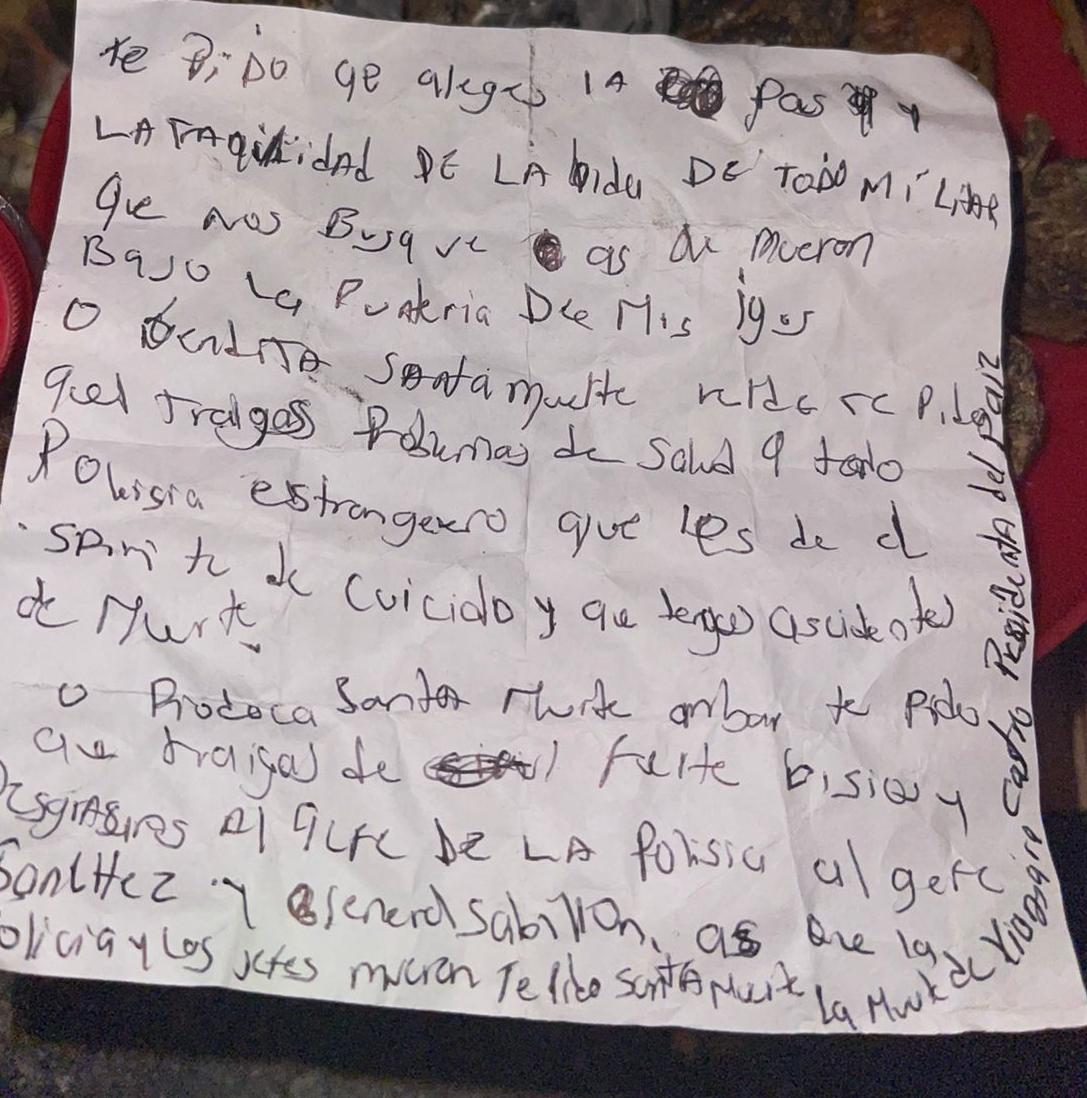 te PiDO qe aleges lA pas y
LA TAqilidAd DE LA bida DE TODO MiLitAR
Que nos Busque as que mueron
BaJo La Punteria Dee Mis ijos
O bendita Santa muerte te Pido
quel traigas Poblemas de Salud a todo
Polisia estrangero que les de el
spirite de Cuicido y que tenga ascidentes
de Muerte
O Santa Muerte te Pido
que traigas de fuerte bision y
Al gefe DE LA Polisia al gefe
SanCHez y General Sabillon, as Que la
Policia y Los jefes mueran Te Pido SantA Muerte La Muerte de Xiomara Castro Presidenta del Paiz